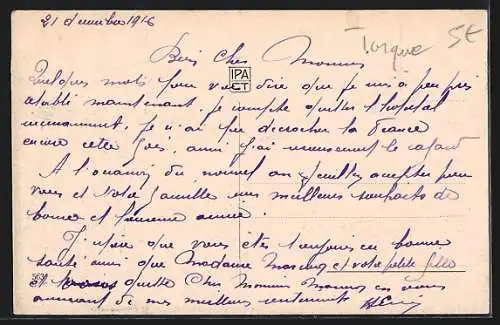 21 décembre 1916
Bien Cher Monsieur
Torque 5€
IPA
CT
Quelques mots pour vous dire que je suis a peu près
établi maintenant. je compte quitter l'hopital
incessamment, je n'ai pu decrocher la
encore cette fois, aussi j'ai sérieusement le cafard
A l'occasion du nouvel an veuillez accepter pour
vous et votre famille mes meilleurs souhaits de
bonne et heureuse année.
J'espère que vous etes toujours en bonne
santé ainsi que Madame et votre petite fille
quitte Cher Monsieur en vous
assurant de mes meilleurs sentiments